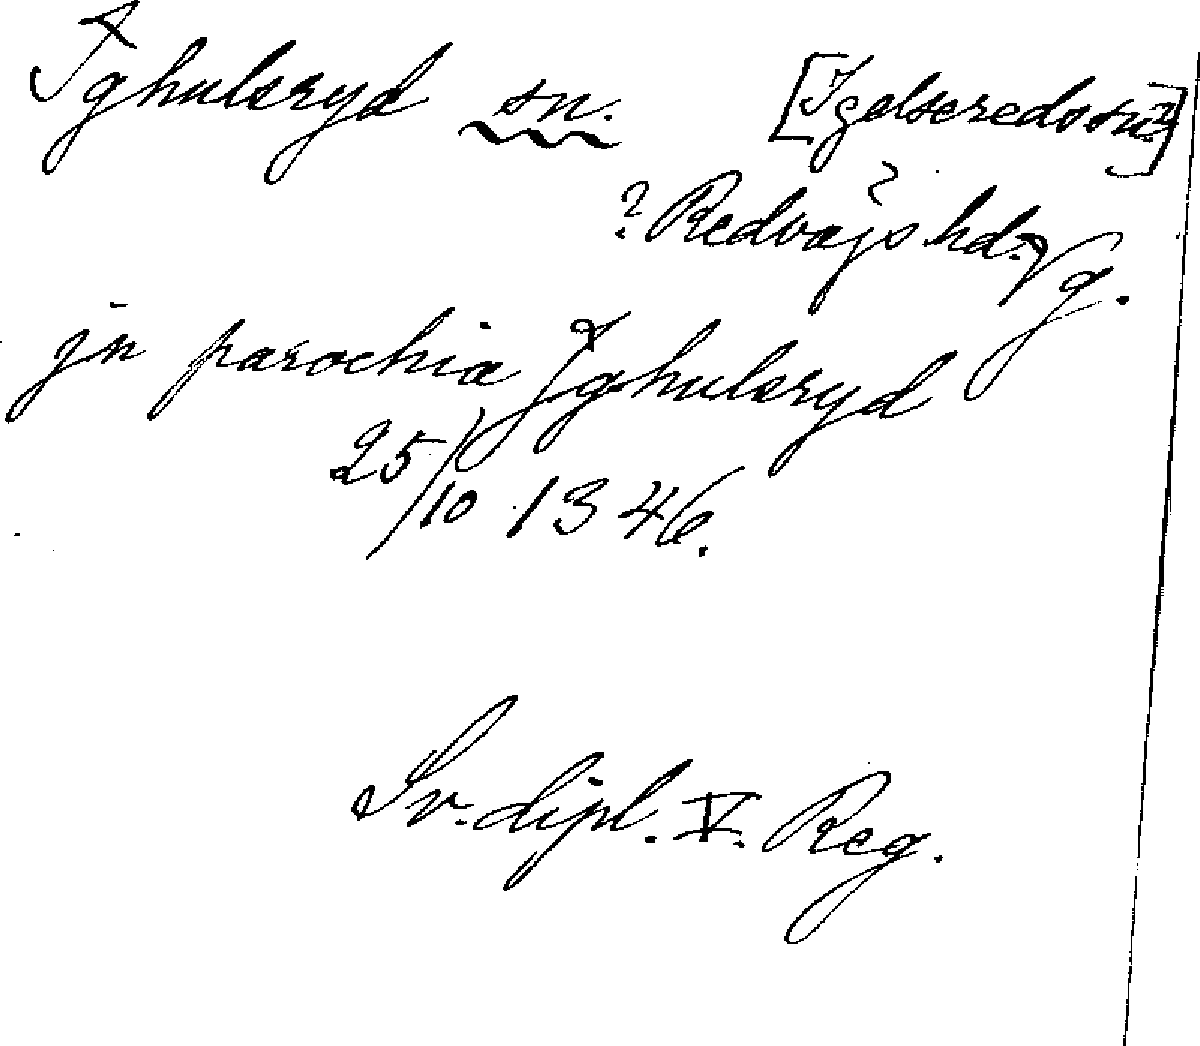 Ighulsryd sn. [Igelseredssn?]
? Redvägs hd. Vg.
jn parochia Jghulsryd
25/10 1346.
Sv. dipl. V. Reg.